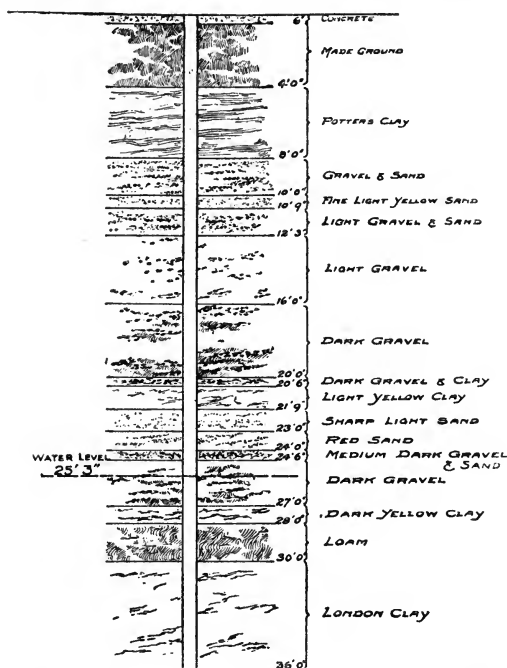 6" CONCRETE
MADE GROUND
4'0"
POTTERS CLAY
8'0"
GRAVEL & SAND
10'0"
FINE LIGHT YELLOW SAND
10'9"
LIGHT GRAVEL & SAND
12'3"
LIGHT GRAVEL
16'0"
DARK GRAVEL
20'0"
DARK GRAVEL & CLAY
20'6"
LIGHT YELLOW CLAY
21'9"
SHARP LIGHT SAND
23'0"
RED SAND
24'0"
MEDIUM DARK GRAVEL
& SAND
24'6"
WATER LEVEL
25' 3"
DARK GRAVEL
27'0"
DARK YELLOW CLAY
28'0"
LOAM
30'0"
LONDON CLAY
36'0"